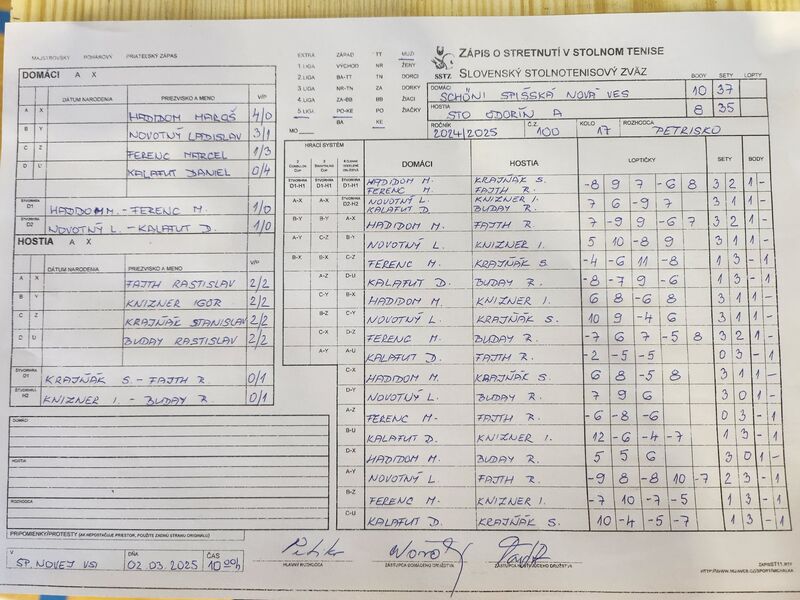 MAJSTROVSKÝ POHÁROVÝ PRIATEĽSKÝ ZÁPAS
EXTRA ZÁPAD TT MUŽI
1.LIGA VÝCHOD NR ŽENY
2.LIGA BA-TT TN DORCI
3.LIGA NR-TN ZA DORKY
4.LIGA ZA-BB BB ŽIACI
5.LIGA PO-KE PO ŽIAČKY
BA KE
MO
SSTZ
ZÁPIS O STRETNUTÍ V STOLNOM TENISE
SLOVENSKÝ STOLNOTENISOVÝ ZVÄZ
BODY SETY LOPTY
DOMÁCI SCHÖNI SPIŠSKÁ NOVÁ VES 10 37
HOSTIA STO ODORÍN A 8 35
ROČNÍK 2024/2025 Č.Z. 100 KOLO 17 ROZHODCA PETRISKO
DOMÁCI A X
DÁTUM NARODENIA PRIEZVISKO A MENO V/P
A X HADIDOM MAROŠ 4/0
B Y NOVOTNÝ LADISLAV 3/1
C Z FERENC MARCEL 1/3
D U KALAFUT DANIEL 0/4
ŠTVORHRA D1 HADIDOM M. - FERENC M. 1/0
ŠTVORHRA D2 NOVOTNÝ L. - KALAFUT D. 1/0
HOSTIA A X
DÁTUM NARODENIA PRIEZVISKO A MENO V/P
A X FAJTH RASTISLAV 2/2
B Y KNIZNER IGOR 2/2
C Z KRAJŇÁK STANISLAV 2/2
D U BUDAY RASTISLAV 2/2
ŠTVORHRA D1 KRAJŇÁK S. - FAJTH R. 0/1
ŠTVORHRA H2 KNIZNER I. - BUDAY R. 0/1
DOMÁCI
HOSTIA
ROZHODCA
PRIPOMIENKY/PROTESTY (AK NEPOSTAČUJE PRIESTOR, POUŽITE ZADNÚ STRANU ORIGINÁLU)
HRACÍ SYSTÉM
DOMÁCI HOSTIA LOPTIČKY SETY BODY
ŠTVORHRA D1-H1 ŠTVORHRA D1-H1 ŠTVORHRA D1-H1 HADIDOM M. FERENC M. KRAJŇÁK S. FAJTH R. -8 9 7 -6 8 3 2 1 -
A-X A-X ŠTVORHRA D2-H2 NOVOTNÝ L. KALAFUT D. KNIZNER I. BUDAY R. 7 6 -9 7 3 1 1 -
B-Y B-Y A-X HADIDOM M. FAJTH R. 7 -9 9 -6 7 3 2 1 -
A-Y C-Z B-Y NOVOTNÝ L. KNIZNER I. 5 10 -8 9 3 1 1 -
B-X B-X C-Z FERENC M. KRAJŇÁK S. -4 -6 11 -8 1 3 - 1
A-Z D-U KALAFUT D. BUDAY R. -8 -7 9 -6 1 3 - 1
C-Y B-X HADIDOM M. KNIZNER I. 6 8 -6 8 3 1 1 -
B-Z C-Y NOVOTNÝ L. KRAJŇÁK S. 10 9 -4 6 3 1 1 -
C-X D-Z FERENC M. BUDAY R. -7 6 7 -5 8 3 2 1 -
A-Y A-U KALAFUT D. FAJTH R. -2 -5 -5 0 3 - 1
C-X HADIDOM M. KRAJŇÁK S. 6 8 -5 8 3 1 1 -
D-Y NOVOTNÝ L. BUDAY R. 7 9 6 3 0 1 -
A-Z FERENC M. FAJTH R. -6 -8 -6 0 3 - 1
B-U KALAFUT D. KNIZNER I. 12 -6 -4 -7 1 3 - 1
D-X HADIDOM M. BUDAY R. 5 5 6 3 0 1 -
A-Y NOVOTNÝ L. FAJTH R. -9 8 -8 10 -7 2 3 - 1
B-Z FERENC M. KNIZNER I. -7 10 -7 -5 1 3 - 1
C-U KALAFUT D. KRAJŇÁK S. 10 -4 -5 -7 1 3 - 1
V SP. NOVEJ VSI DŇA 02.03.2025 ČAS 10.00h
HLAVNÝ ROZHODCA
ZÁSTUPCA DOMÁCEHO DRUŽSTVA
ZÁSTUPCA HOSŤUJÚCEHO DRUŽSTVA
ZAPISST11.RTF